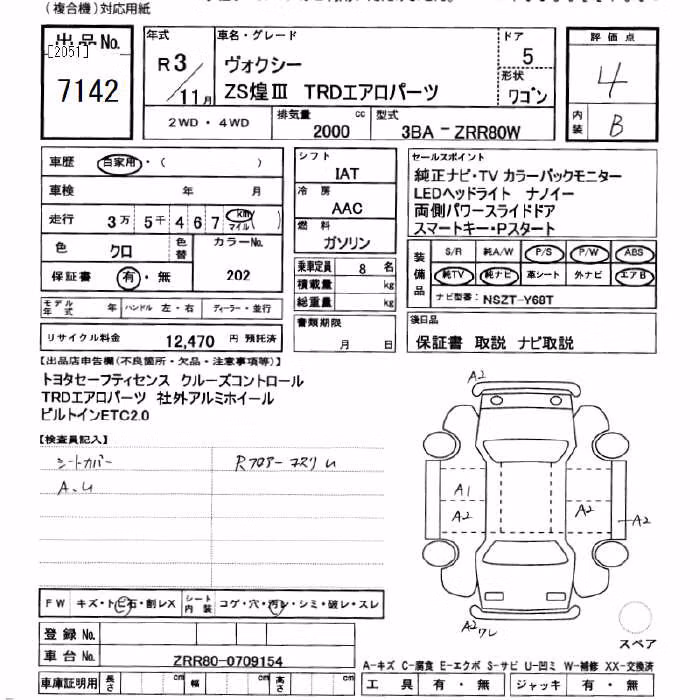 (複合機)対応用紙
出品No.
[2051]
7142
年式
R3/11月
車名・グレード
ヴォクシー
ZS煌Ⅲ TRDエアロパーツ
ドア
5
形状
ワゴン
評価点
4
内装
B
2WD・4WD
排気量
2000 cc
型式
3BA-ZRR80W
車歴 自家用・( )
車検 年 月
走行 3万5千467 km マイル ( )
色 クロ 色替 カラーNo. 202
保証書 有・無
シフト
IAT
冷房
AAC
燃料
ガソリン
乗車定員 8 名
積載量 kg
総重量 kg
書類期限
月 日
セールスポイント
純正ナビ・TV カラーバックモニター
LEDヘッドライト ナノイー
両側パワースライドドア
スマートキー・Pスタート
装備品
S/R 純A/W P/S P/W ABS
純TV 純ナビ 革シート 外ナビ エアB
ナビ型番: NSZT-Y68T
モデル年式 年 ハンドル 左・右 ディーラー・並行
リサイクル料金 12,470 円 預託済
後日品
保証書 取説 ナビ取説
【出品店申告欄(不良箇所・欠品・注意事項等)】
トヨタセーフティセンス クルーズコントロール
TRDエアロパーツ 社外アルミホイール
ビルトインETC2.0
【検査員記入】
シートカバー
A.U
RフロアーコスリU
A2
A1
A2
A2
A2
A2 ワレ
スペア
FW キズ・トビ石・割レX シート内装 コゲ・穴・汚レ・シミ・破レ・スレ
登録No.
車台No. ZRR80-0709154
車庫証明用 長さ cm 幅 cm 高さ cm
A-キズ C-腐食 E-エクボ S-サビ U-凹ミ W-補修 XX-交換済
工具 有・無 ジャッキ 有・無